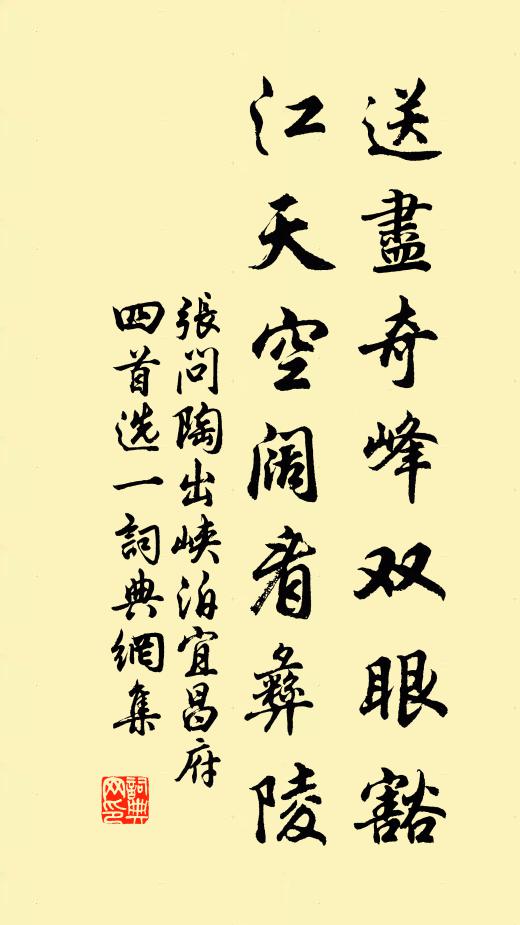 送盡奇峰双眼豁
江天空阔看彝陵
張問陶出峡泊宜昌府
四首选一詞典網集
詞典网印